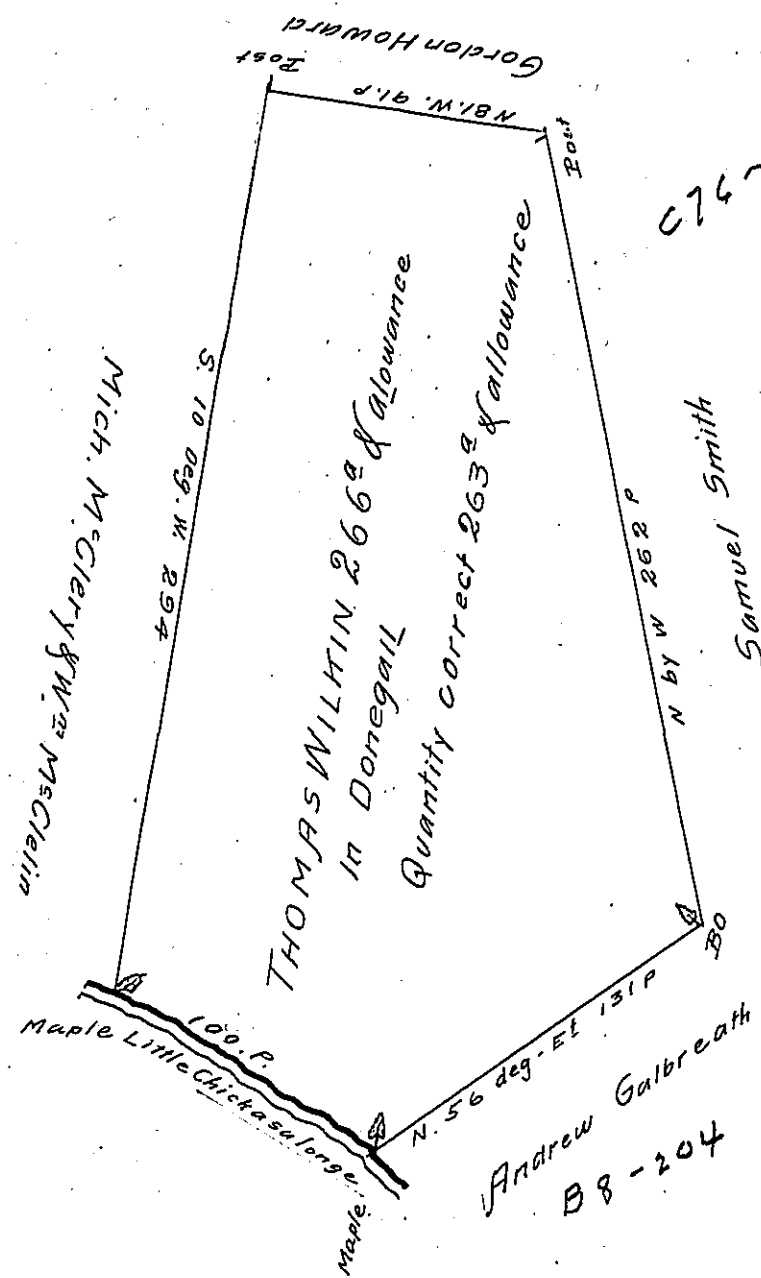 Gordon Howard
Post
N81.W. 91.P
Post
C76
S. 10 Deg. W. 294
Mich. McClery & Wm McClelin
THOMAS WILKIN 266a & alowance
in Donegall
Quantity correct 263a & allowance
N by W 262 P
Samuel Smith
BO
100.P.
Maple Little Chickasalonge
Maple
N. 56 deg. Et 131 P
Andrew Galbreath
B8-204